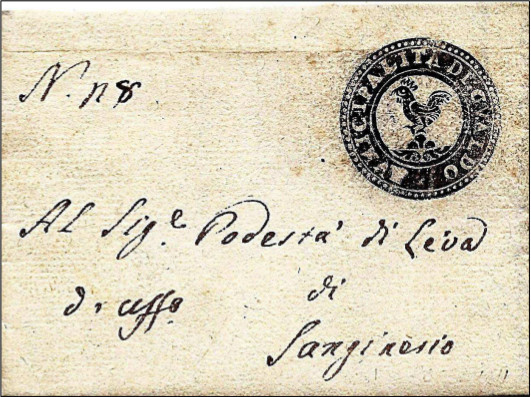 N. 118
MUNICIPALITA DE GUALDO
Al Sig.e Podestà di Leva
d'uffo
di
Sanginesio